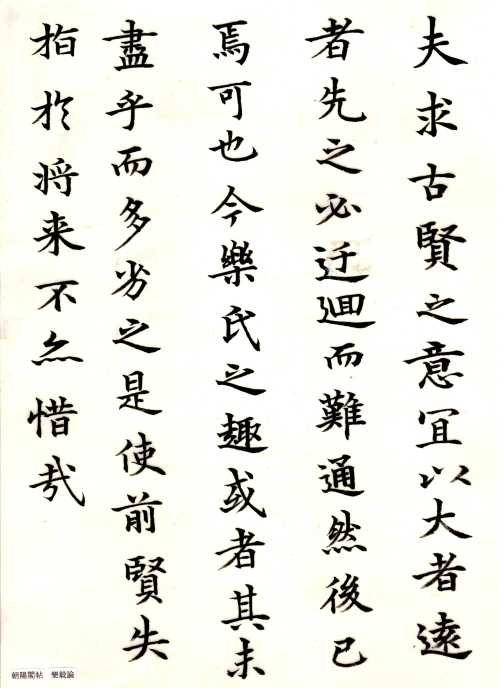 夫求古賢之意宜以大者遠
者先之必迂迴而難通然後已
焉可也今樂氏之趣或者其未
盡乎而多劣之是使前賢失
指於将来不亦惜哉
朝陽閣帖　樂毅論